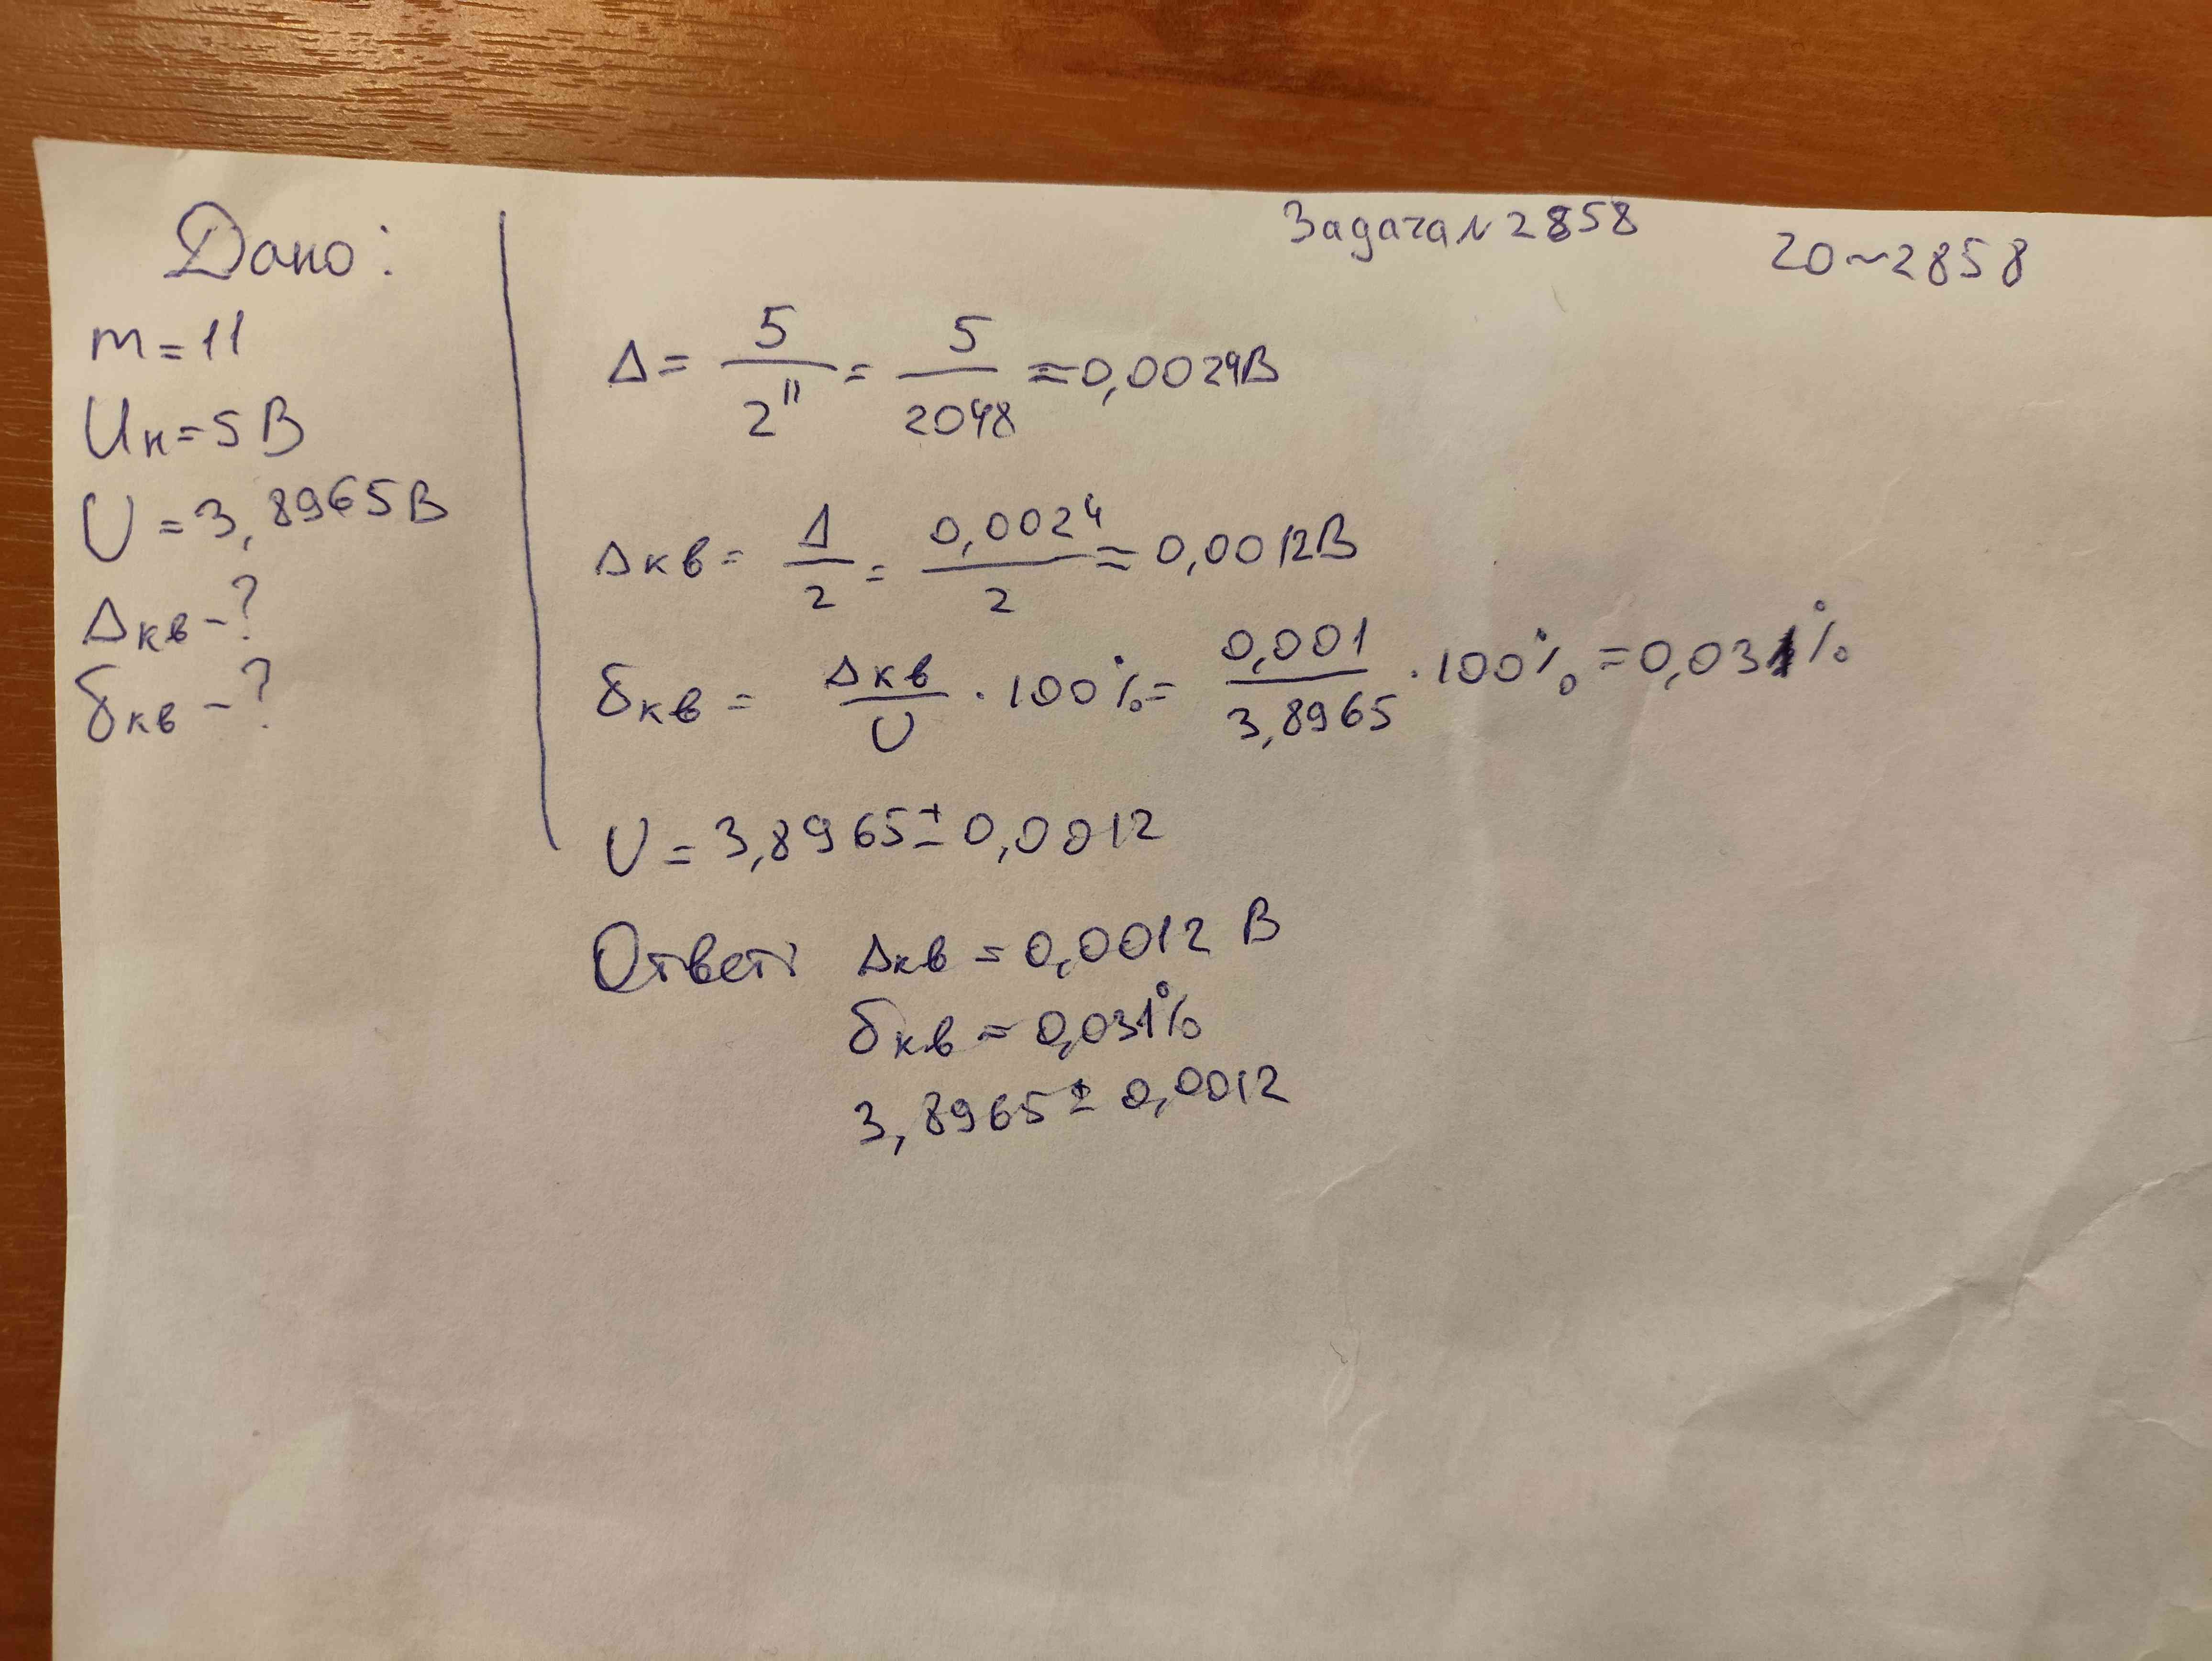 Дано:
m=11
Uн=5В
U=3,8965В
Δкв-?
δкв-?
Задача №2858
20~2858
Δ= 5/2^11 = 5/2048 ≈0,0024В
Δкв= Δ/2 = 0,0024/2 ≈ 0,0012В
δкв = Δкв/U · 100%= 0,001/3,8965 · 100% =0,031%
U = 3,8965±0,0012
Ответ: Δкв = 0,0012 В
δкв = 0,031%
3,8965 ± 0,0012